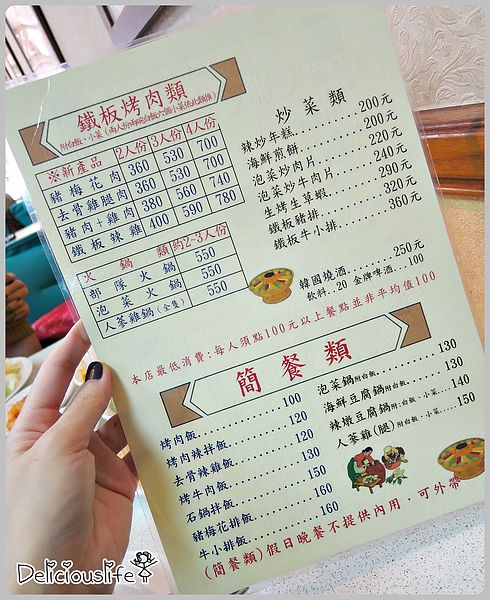 鐵板烤肉類
附白飯、小菜(兩人份附兩碗白飯六個小菜依此類推)
※新產品 2人份 3人份 4人份
豬梅花肉 360 530 700
去骨雞腿肉 360 530 700
豬肉+雞肉 380 560 740
鐵板辣雞 400 590 780
火鍋類 約2~3人份
部隊火鍋 550
泡菜火鍋 550
人蔘雞鍋(全隻) 550
炒菜類
辣炒年糕 200元
海鮮煎餅 200元
泡菜炒肉片 220元
泡菜炒牛肉片 240元
生烤生草蝦 290元
鐵板豬排 320元
鐵板牛小排 360元
韓國燒酒 250元
飲料..20 金牌啤酒...100
本店最低消費:每人須點100元以上餐點並非平均值100
簡餐類
烤肉飯 100
烤肉辣拌飯 120
去骨辣雞飯 120
烤牛肉飯 130
石鍋拌飯 150
豬梅花排飯 160
牛小排飯 160
泡菜鍋附白飯 130
海鮮豆腐鍋附白飯 130
辣燉豆腐鍋附:白飯、小菜 140
人蔘雞(腿)附白飯、小菜 150
(簡餐類)假日晚餐不提供內用 可外帶
Deliciouslife